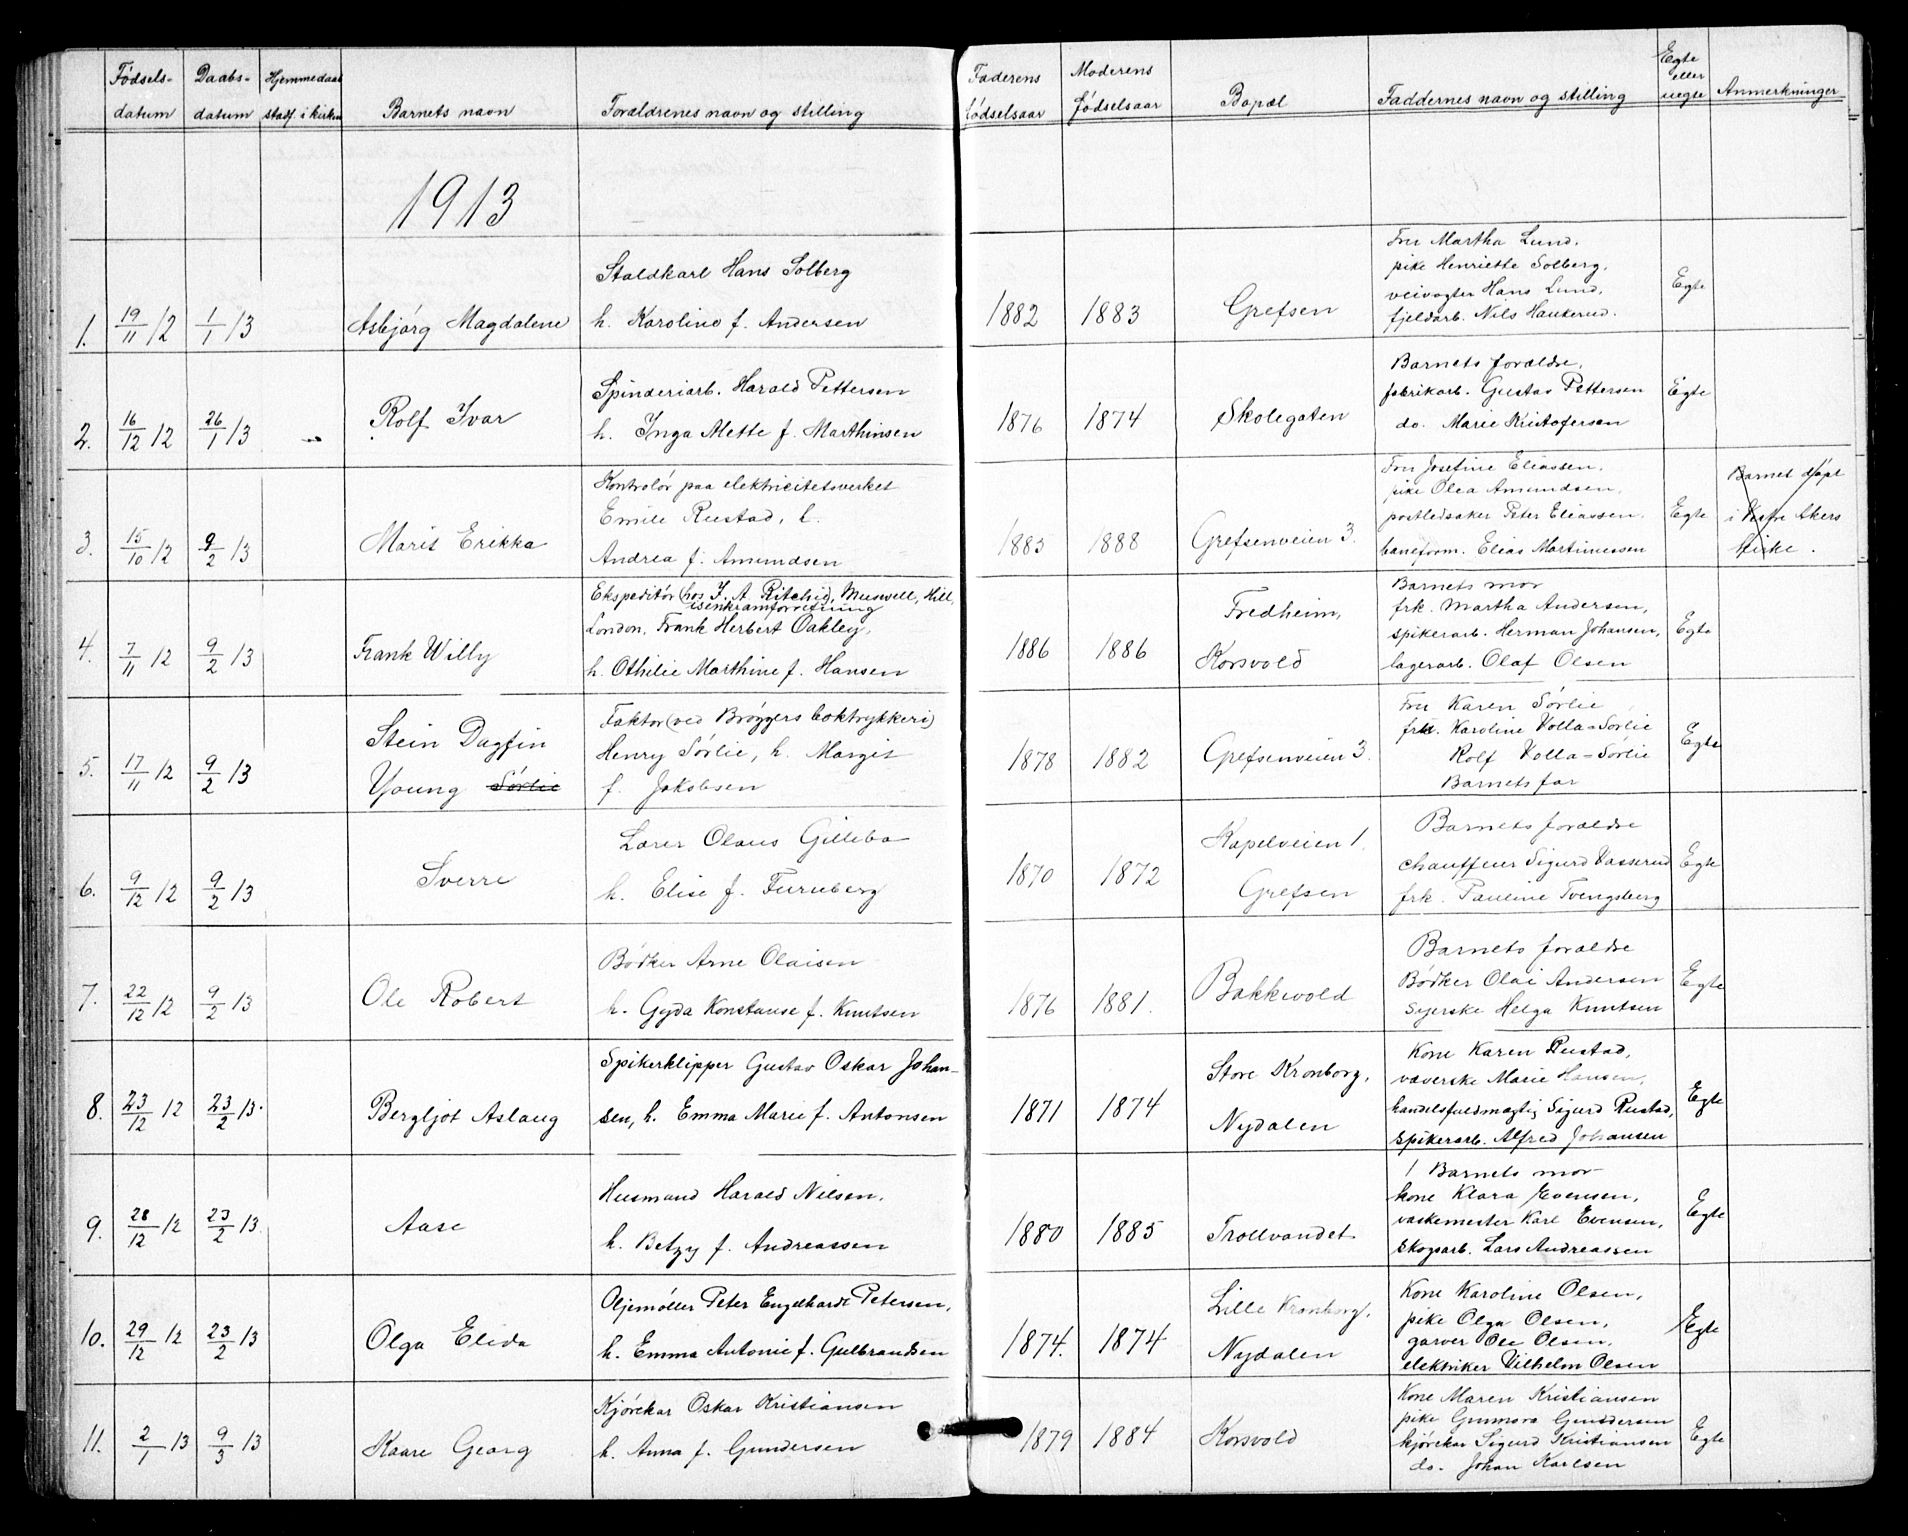 Fødsels-
datum
Daabs-
datum
Hjemmedaab
stadf. i kirken
Barnets navn
Forældrenes navn og stilling
Faderens
fødselsaar
Moderens
fødselsaar
Bopæl
Faddernes navn og stilling
Egte
eller
uegte
Anmerkninger
1913
1. 19/11 12 1/1 13 Asbjørg Magdalene
Staldkarl Hans Solberg
h. Karoline f. Andersen
1882 1883 Grefsen
Fru Martha Lund.
pike Henriette Solberg.
veivogter Hans Lund.
fjeldarb. Nils Haukerud.
Egte
2. 16/12 12 26/1 13 Rolf Ivar
Spinderiarb. Harald Pettersen
h. Inga Mette f. Marthinsen
1876 1874 Skolegaten
Barnets forældre.
fabrikarb. Gustav Pettersen
do. Marie Kristofersen
Egte
3. 15/10 12 9/2 13 Marit Erikka
Kontrolør paa elektricitetsverket
Emile Rustad, h.
Andrea f. Amundsen
1885 1888 Grefsenveien 3.
Fru Josefine Eliassen.
pike Olea Amundsen.
postledsaker Peter Eliassen.
baneform. Elias Martinussen
Egte
Barnet døpt
i Vestre Akers
kirke.
4. 7/11 12 9/2 13 Frank Willy
Ekspeditør (hos J. A. Ritchid, Muswell, Hill,
isenkramforretning
London, Frank Herbert Oakley,
h. Othilie Marthine f. Hansen
1886 1886
Fredheim,
Korsvold
Barnets mor
frk. Martha Andersen,
spikerarb. Herman Johansen,
lagerarb. Olaf Olsen
Egte
5. 17/11 12 9/2 13
Stein Dagfin
Young Sørlie
Faktor (ved Brøggers boktrykkeri)
Henry Sørlie, h. Margit
f. Jakobsen
1878 1882 Grefsenveien 3.
Fru Karen Sørlie
frk. Karoline Volla-Sørlie
Rolf Volla-Sørlie
Barnets far
Egte
6. 9/12 12 9/2 13 Sverre
Lærer Olaus Gillebo
h. Elise f. Furuberg
1870 1872
Kapelveien 1.
Grefsen
Barnets forældre
chauffeur Sigurd Vasserud
frk. Pauline Tvengsberg
Egte
7. 22/12 12 9/2 13 Ole Robert
Bødker Arne Olaisen
h. Gyda Konstanse f. Knutsen
1876 1881. Bakkevold
Barnets forældre
Bødker Olai Andersen
Syerske Helga Knutsen
Egte
8. 23/12 12 23/2 13. Bergljot Aslaug
Spikerklipper Gustav Oskar Johan-
sen, h. Emma Marie f. Antonsen
1871 1874
Store Kronborg,
Nydalen
Kone Karen Rustad,
væverske Marie Hansen,
handelsfuldmægtig Sigurd Rustad,
spikerarb. Alfred Johansen
Egte
9. 28/12 12 23/2 13. Aase
Husmand Harald Nilsen.
h. Betzy f. Andreassen
1880 1885 Trollvandet
Barnets mor
kone Klara Evensen,
vaskemester Karl Evensen,
skogsarb. Lars Andreassen
Egte
10. 29/12 12 23/2 13 Olga Elida
Oljemøller Peter Engelhardt Petersen,
h. Emma Antonie f. Gulbrandsen
1874. 1874
Lille Kronborg,
Nydalen
Kone Karoline Olsen,
pike Olga Olsen,
garver Ole Olsen.
elektriker Vilhelm Olsen
Egte
11. 2/1 13 9/3 13 Kaare Georg
Kjørekar Oskar Kristiansen
h. Anna f. Gundersen
1879 1884 Korsvold
Kone Maren Kristiansen
pike Gunnora Gundersen
kjørekar Sigurd Kristiansen
do. Johan Karlsen
Egte